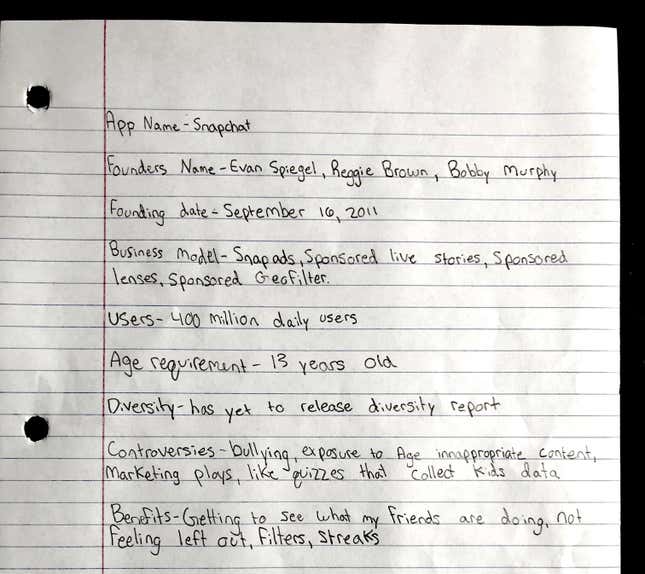 App Name - Snapchat
Founders Name - Evan Spiegel, Reggie Brown, Bobby Murphy
Founding date - September 16, 2011
Business Model - Snap ads, Sponsored live stories, Sponsored
lenses, Sponsored Geofilter.
Users - 400 million daily users
Age requirement - 13 years old
Diversity - has yet to release diversity report
Controversies - bullying, exposure to Age innappropriate content,
Marketing plays, like quizzes that collect kids data
Benefits - Getting to see what my friends are doing, not
feeling left out, filters, streaks